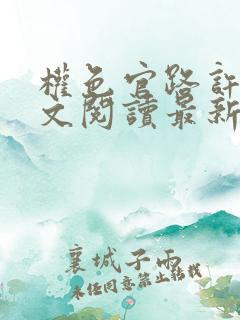 權色官路許
文閱讀最新
襄城子雨
未经同意禁止转载